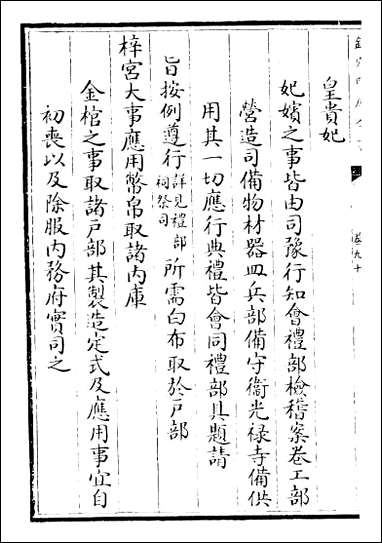 皇貴妃
妃嬪之事皆由司豫行知會禮部檢稽案卷工部
營造司備物材器皿兵部備守衛光禄寺備供
用其一切應行典禮皆會同禮部具題請
㫖按例遵行詳見禮部祠祭司所需白布取於戸部
梓宫大事應用幣帛取諸内庫
金棺之事取諸戸部其製造定式及應用事宜自
初喪以及除服内務府實司之
卷九十